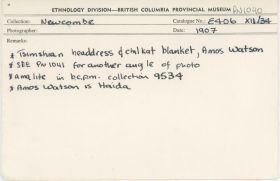 ETHNOLOGY DIVISION—BRITISH COLUMBIA PROVINCIAL MUSEUM PN1040
Collection: Newcombe Catalogue No.: E406 XII/34
Photographer: Date: 1907
Remarks:
* Tsimshian headdress & chilkat blanket, Amos Watson
* SEE PN 1041 for another angle of photo
* amalite in bcpm. collection 9534
* Amos Watson is Haida